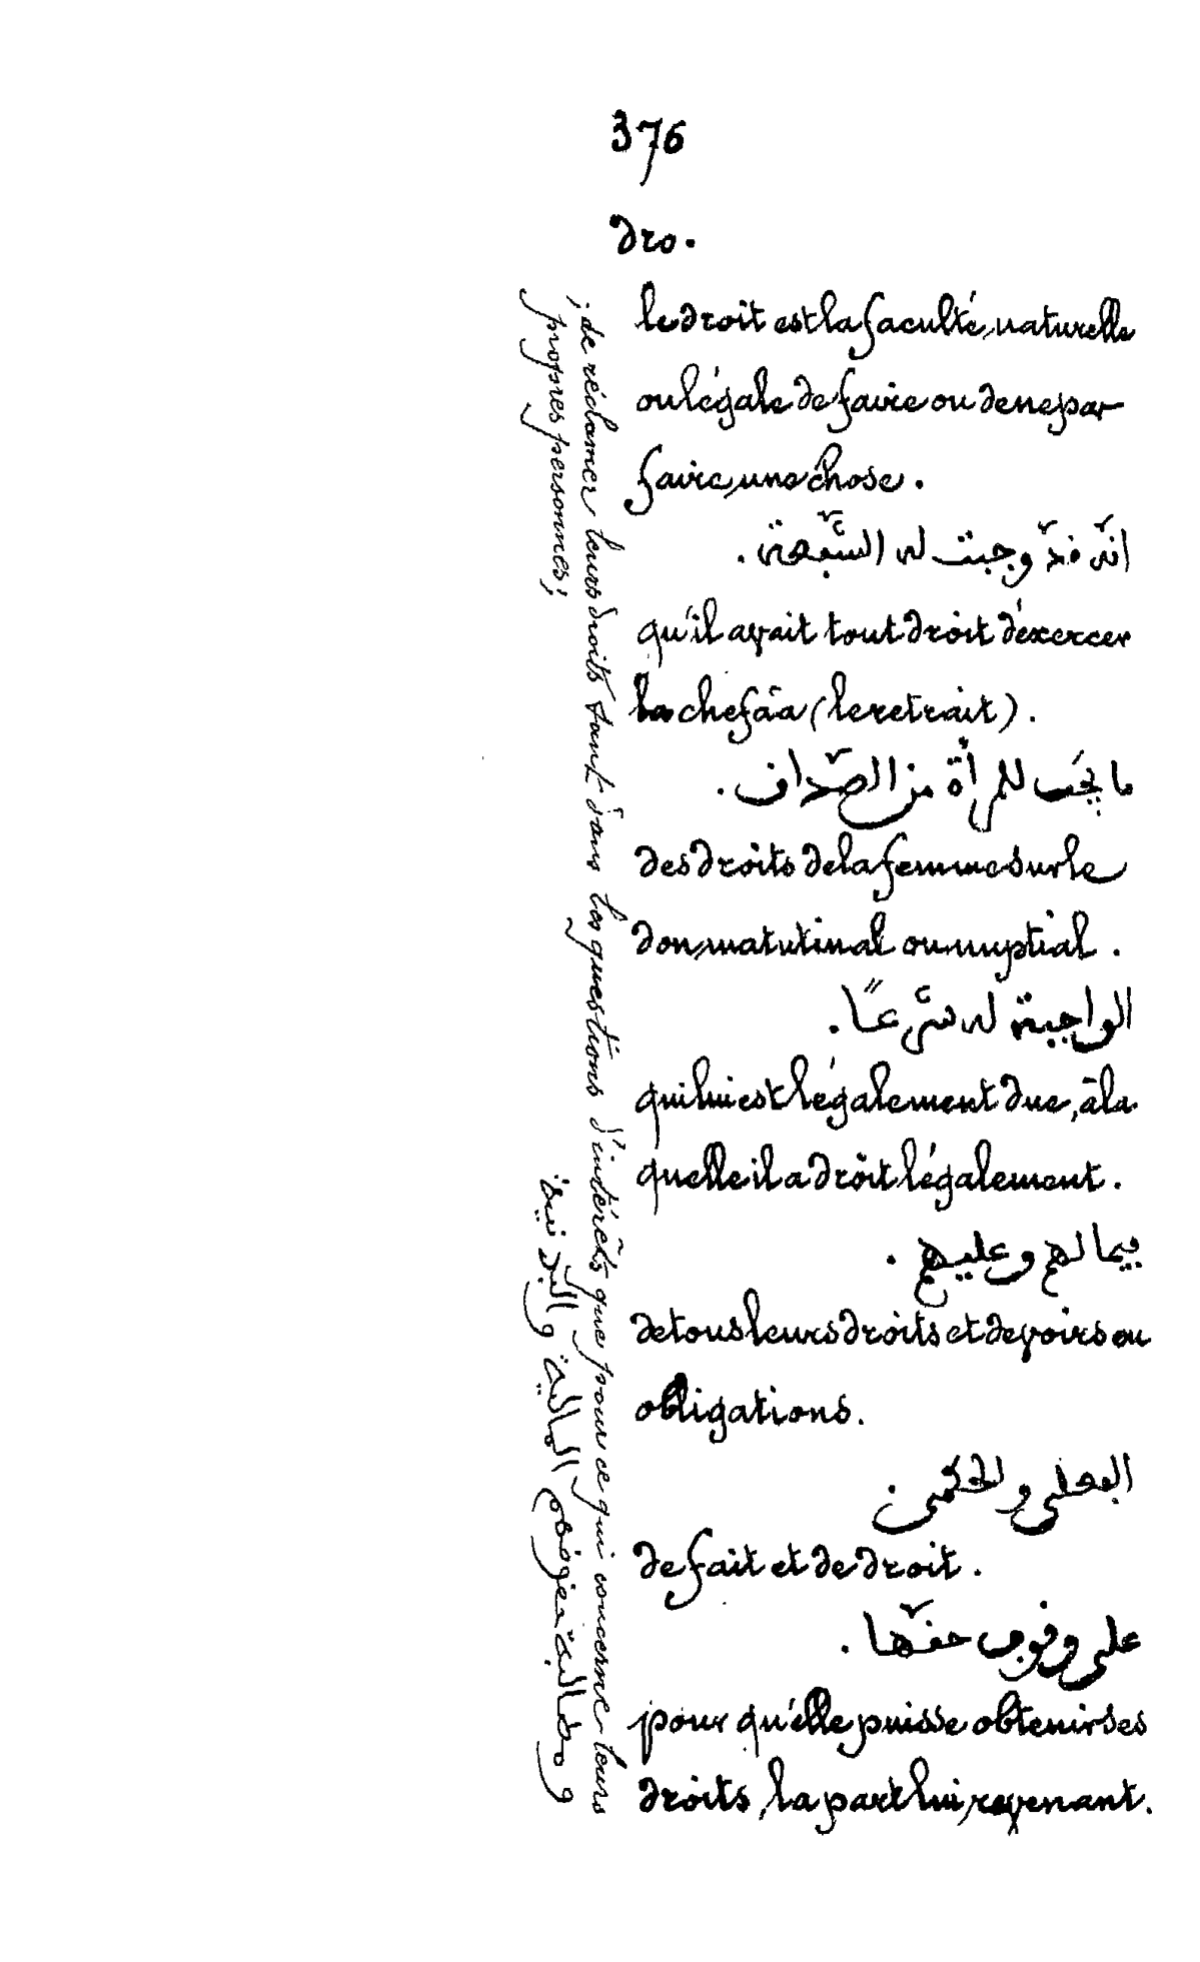 376
dro.
le droit est la faculté, naturelle
ou légale de faire ou de ne par
faire, une chose.
انّه فدّ وجبت له الشّبعة.
qu'il avait tout droit d'éxercer
la chefâa (le retrait).
ما يجَب للمرأة من الصّداف.
des droits de la femme sur le
don, matutinal ou nuptial.
الواجبة له شرعًا.
qui lui est légalement due, à la
quelle il a droit légalement.
بيما لهم وعليهم.
de tous leurs droits et devoirs ou
obligations.
البعلى والحكمى.
de fait et de droit.
على وفوب حفّها.
pour qu'elle puisse obtenir ses
droits, la part lui, revenant.
ومطالبة حفوفهم المالية والبدنية
; de réclamer leurs droits tant dans les questions d'intérêts que pour ce qui concerne leurs
propres personnes;